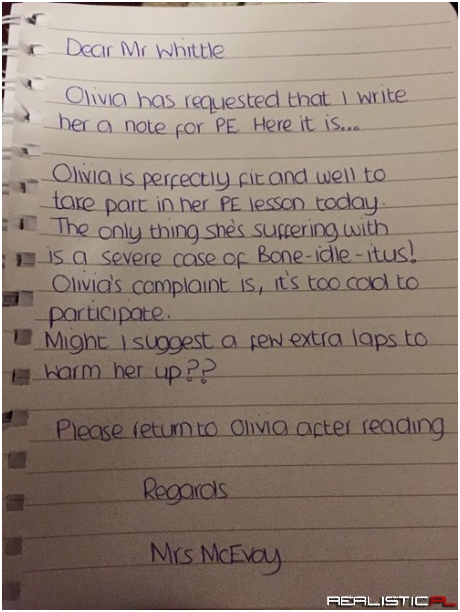 Dear Mr Whittle
Olivia has requested that I write
her a note for PE Here it is...
Olivia is perfectly fit and well to
take part in her PE lesson today.
The only thing she's suffering with
is a severe case of Bone-idle-itus!
Olivia's complaint is, it's too cold to
participate.
Might I suggest a few extra laps to
warm her up??
Please return to Olivia after reading
Regards
Mrs McEvoy
REALISTICPL